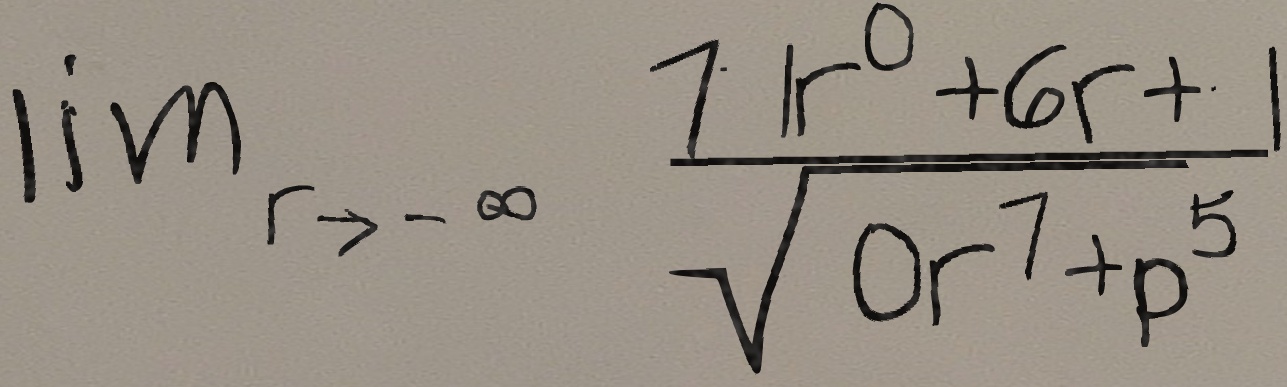 lim r→-∞ (71r^0+6r+1)/(√(0r^7+p^5))